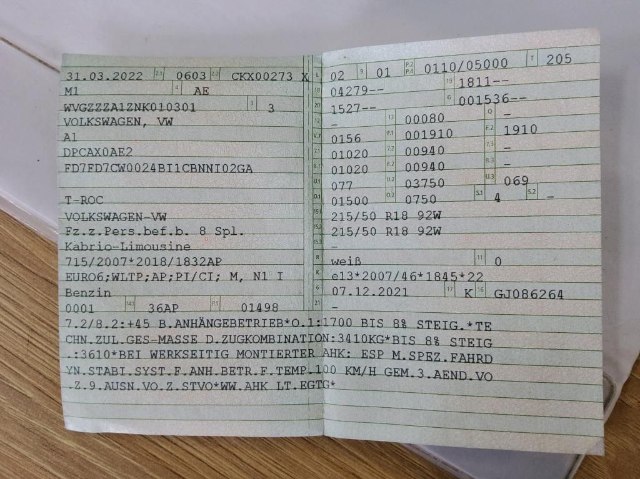 31.03.2022 0603 CKX00273 X
M1 AE
WVGZZZA1ZNK010301 3
VOLKSWAGEN, VW
A1
DPCAX0AE2
FD7FD7CW0024BI1CBNNI02GA
T-ROC
VOLKSWAGEN-VW
Fz.z.Pers.bef.b. 8 Spl.
Kabrio-Limousine
715/2007*2018/1832AP
EURO6;WLTP;AP;PI/CI; M, N1 I
Benzin
0001 36AP 01498
02 01 0110/05000 205
04279-- 1811--
1527-- 001536--
- 00080 -
0156 001910 1910
01020 00940 -
01020 00940 -
077 03750 069
01500 0750 4 -
215/50 R18 92W
215/50 R18 92W
-
weiß 0
e13*2007/46*1845*22
07.12.2021 K GJ086264
-
7.2/8.2:+45 B.ANHÄNGEBETRIEB*O.1:1700 BIS 8% STEIG.*TE
CHN.ZUL.GES-MASSE D.ZUGKOMBINATION:3410KG*BIS 8% STEIG
.:3610*BEI WERKSEITIG MONTIERTER AHK: ESP M.SPEZ.FAHRD
YN.STABI.SYST.F.ANH.BETR.F.TEMP.100 KM/H GEM.3.AEND.VO
.Z.9.AUSN.VO.Z.STVO*WW.AHK LT.EGTG*